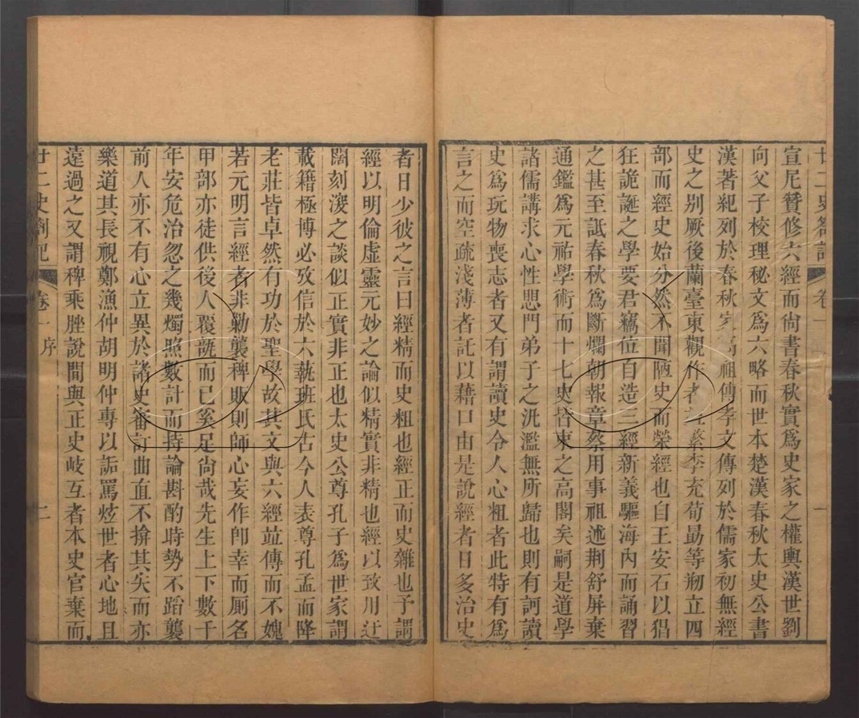 廿二史劄記 卷一
一
宣尼贊修六經而尙書春秋實爲史家之權輿漢世劉
向父子校理秘文爲六略而世本楚漢春秋太史公書
漢著紀列於春秋家高祖傳孝文傳列於儒家初無經
史之別厥後蘭臺東觀作者益繁李充荀勗等剏立四
部而經史始分然不聞陋史而榮經也自王安石以猖
狂詭誕之學要君竊位自造三經新義驅海內而誦習
之甚至詆春秋爲斷爛朝報章蔡用事祖述荆舒屏棄
通鑑爲元祐學術而十七史皆束之高閣矣嗣是道學
諸儒講求心性思門弟子之汎濫無所歸也則有訶讀
史爲玩物喪志者又有謂讀史令人心粗者此特有爲
言之而空疏淺薄者託以藉口由是說經者日多治史
者日少彼之言曰經精而史粗也經正而史雜也予謂
經以明倫虛靈元妙之論似精實非精也經以致用迂
闊刻深之談似正實非正也太史公尊孔子爲世家謂
載籍極博必攷信於六蓺班氏古今人表尊孔孟而降
老莊皆卓然有功於聖學故其文與六經竝傳而不媿
若元明言經者非勦襲稗販則師心妄作卽幸而厠名
甲部亦徒供後人覆瓿而已奚足尙哉先生上下數千
年安危治忽之幾燭照數計而持論斟酌時勢不蹈襲
前人亦不有心立異於諸史審訂曲直不揜其失而亦
樂道其長視鄭漁仲胡明仲專以詬罵炫世者心地且
遠過之又謂稗乘脞說間與正史岐互者本史官棄而
廿二史劄記 卷一 序
二